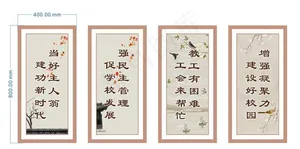 400.00 mm
800.00 mm
当好主人翁
建功新时代
强民主管理
促学校发展
教工有困难
工会来帮忙
增强凝聚力
建设好校园